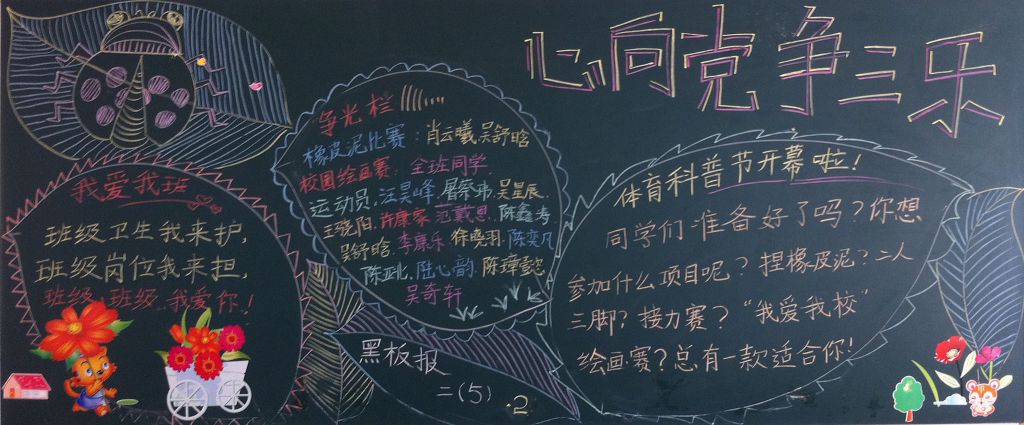 心向党争三乐
我爱我班
班级卫生我来护,
班级岗位我来担,
班级、班级、我爱你!
争光栏
橡皮泥比赛:肖云曦 吴舒晗
校园绘画赛:全班同学
运动员:汪昊峰 屠蔡弗 吴昱展
王晓阳 许康家 范戴恩 陈鑫涛
吴舒晗 李康乐 徐晓羽 陈奕凡
陈亚北 陆心韵 陈璋懿
吴奇轩
黑板报
二(5)
2
体育科普节开幕啦!
同学们准备好了吗?你想
参加什么项目呢?捏橡皮泥?二人
三脚?接力赛?“我爱我校”
绘画赛?总有一款适合你!